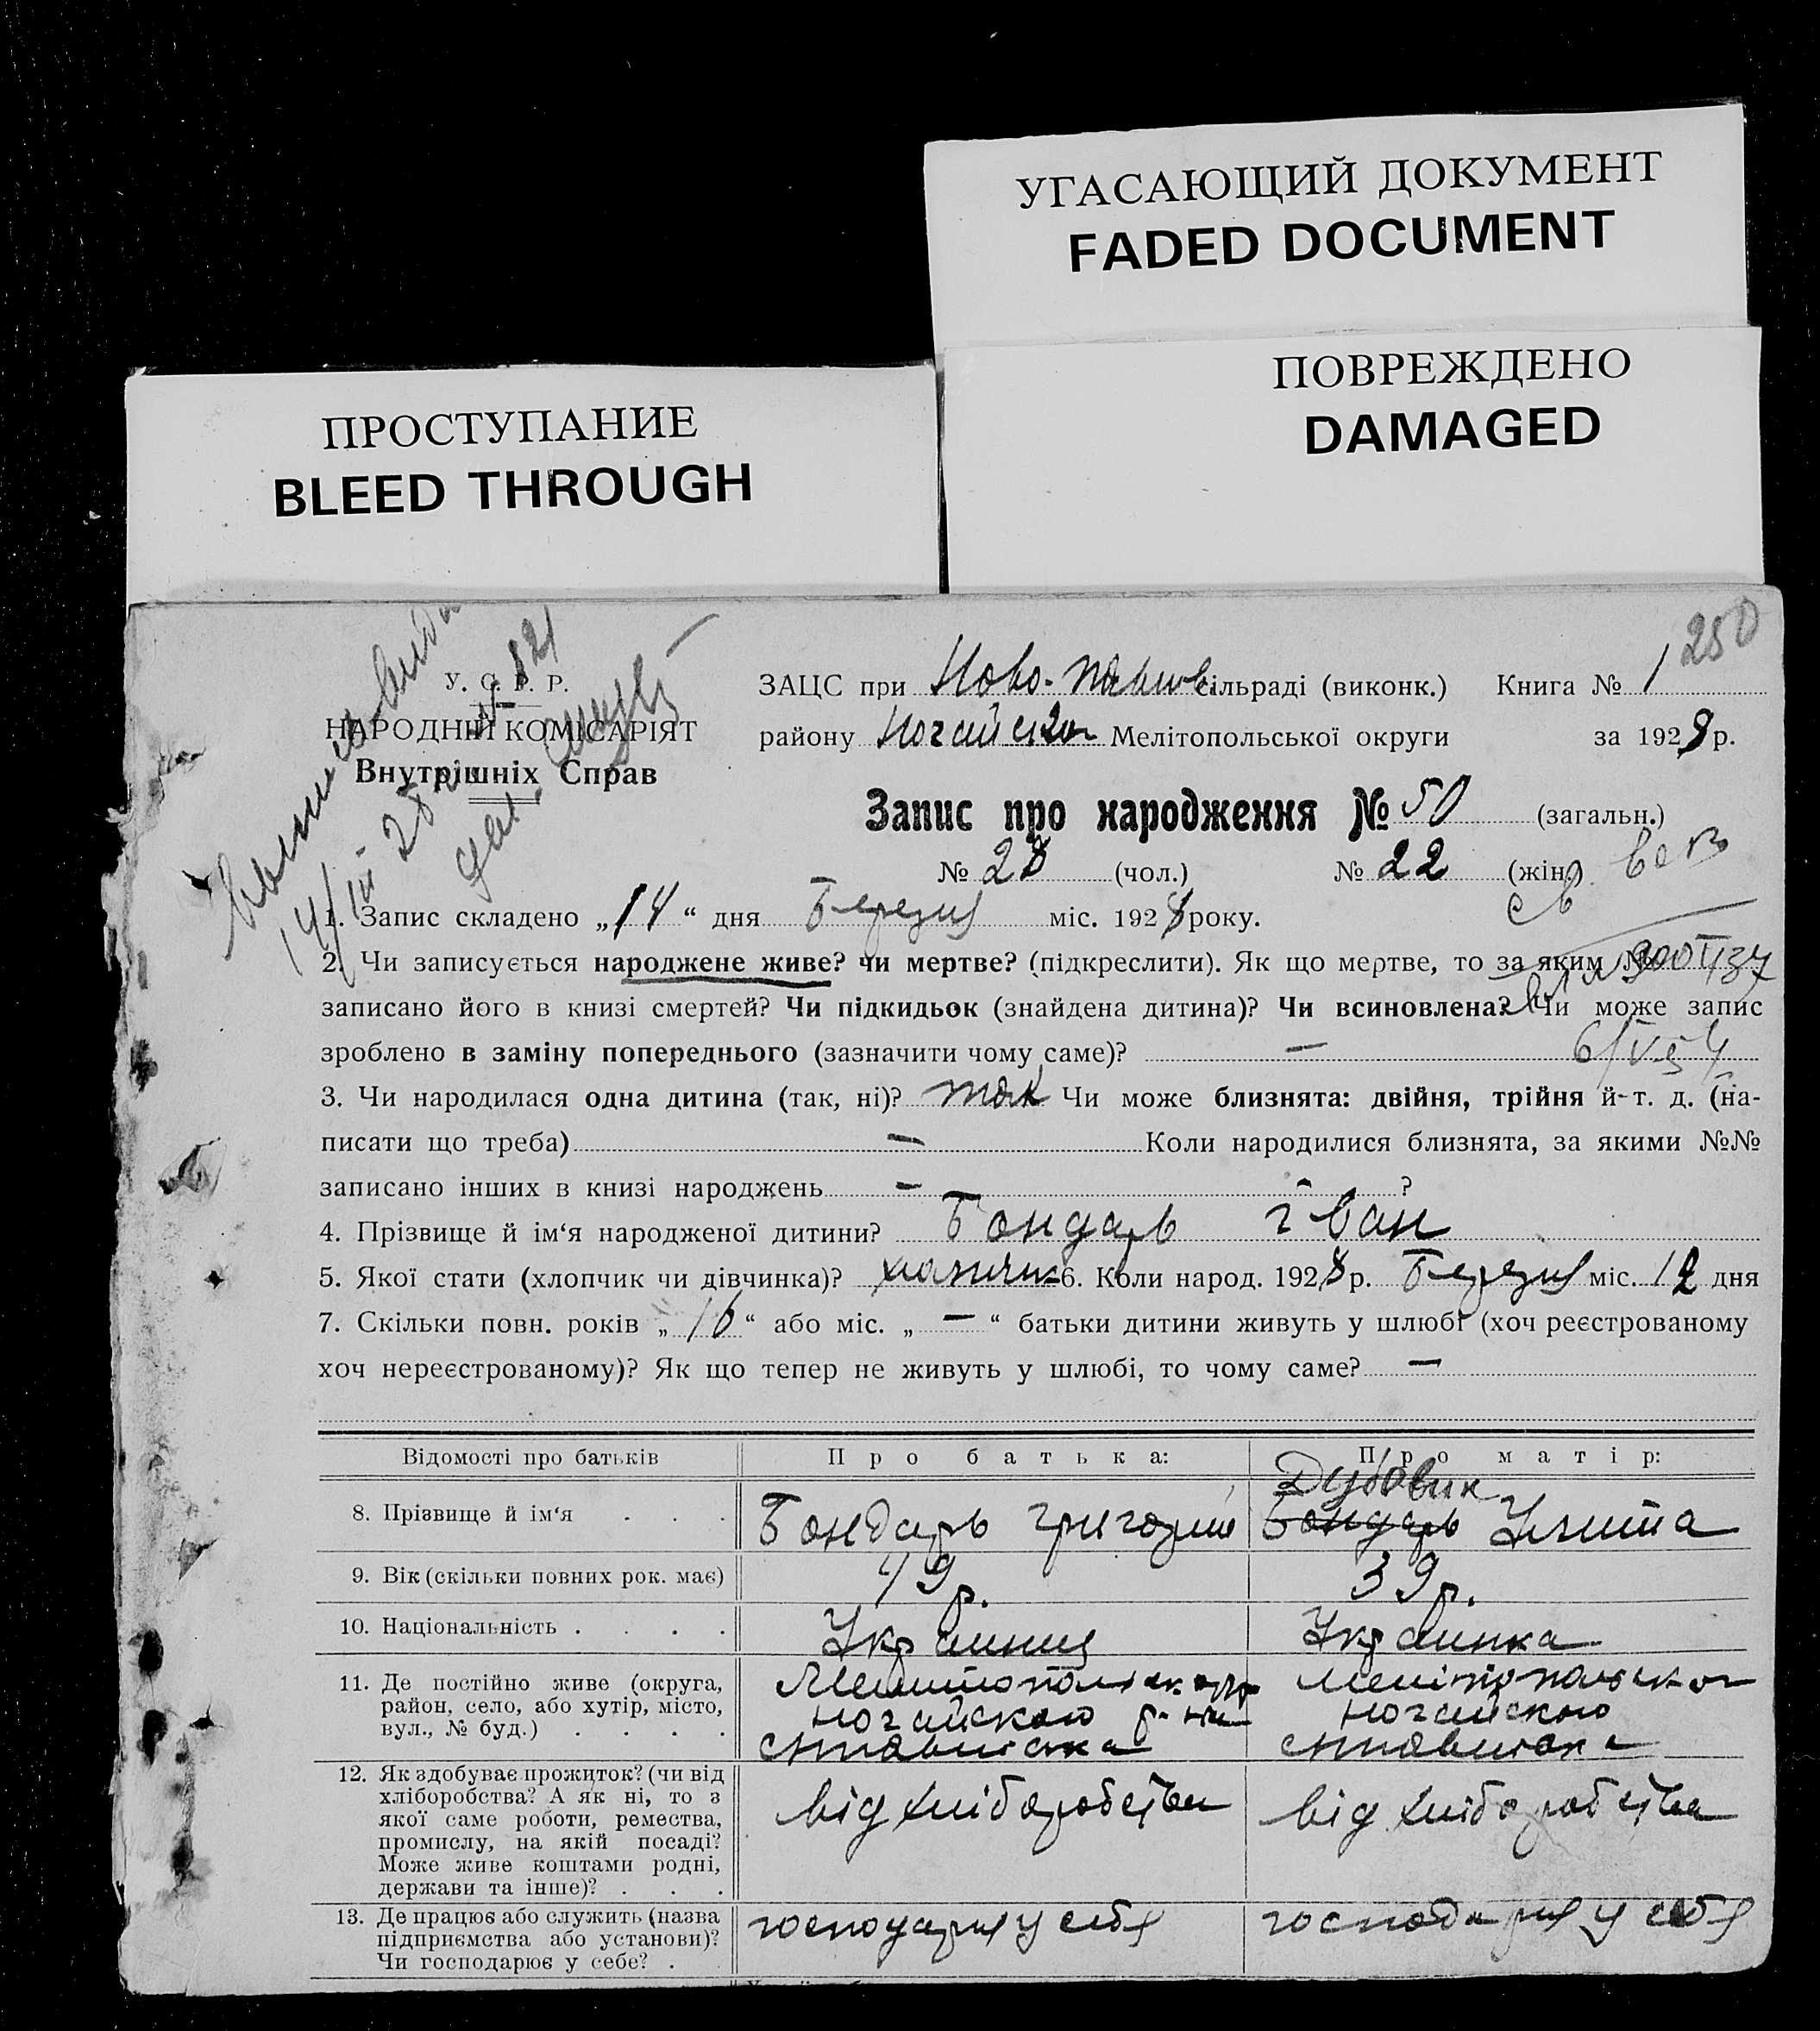 УГАСАЮЩИЙ ДОКУМЕНТ
FADED DOCUMENT
ПОВРЕЖДЕНО
DAMAGED
ПРОСТУПАНИЕ
BLEED THROUGH
250
У. С. Р. Р.
НАРОДНІЙ КОМІСАРІЯТ
Внутрішніх Справ
ЗАЦС при Ново- сільраді (виконк.) Книга № 1
району Ногайского Мелітопольської округи за 1928 р.
Запис про народження № 50 (загальн.)
№ 28 (чол.) № 22 (жін.)
1. Запис складено „14“ дня Березня міс. 1928 року.
2. Чи записується народжене живе? чи мертве? (підкреслити). Як що мертве, то за яким №
записано його в книзі смертей? Чи підкидьок (знайдена дитина)? Чи всиновлена? Чи може запис
зроблено в заміну попереднього (зазначити чому саме)? —
3. Чи народилася одна дитина (так, ні)? так Чи може близнята: двійня, трійня й-т. д. (на-
писати що треба) — Коли народилися близнята, за якими №№
записано інших в книзі народжень — ?
4. Прізвище й ім‘я народженої дитини? Бондарь Іван
5. Якої стати (хлопчик чи дівчинка)? хлопчик 6. Коли народ. 1928 р. Березня міс. 12 дня
7. Скільки повн. років „16“ або міс. „—“ батьки дитини живуть у шлюбі (хоч реєстрованому
хоч нереєстрованому)? Як що тепер не живуть у шлюбі, то чому саме? —
Відомості про батьків Про батька: Про матір:
Дубовик
8. Прізвище й ім‘я Бондарь Григорій Бондарь Улита
9. Вік (скільки повних рок. має) 49 р. 39 р.
10. Національність Украинец Украинка
11. Де постійно живе (округа,
район, село, або хутір, місто,
вул., № буд.)
Мелитопольск окр Мелітопольског
Ногайского р-на Ногайского
12. Як здобуває прожиток? (чи від
хліборобства? А як ні, то з
якої саме роботи, ремества,
промислу, на якій посаді?
Може живе коштами родні,
держави та інше)?
від хліборобства від хліборобства
13. Де працює або служить (назва
підприємства або установи)?
Чи господарює у себе?
господаря у себя господаря у себя